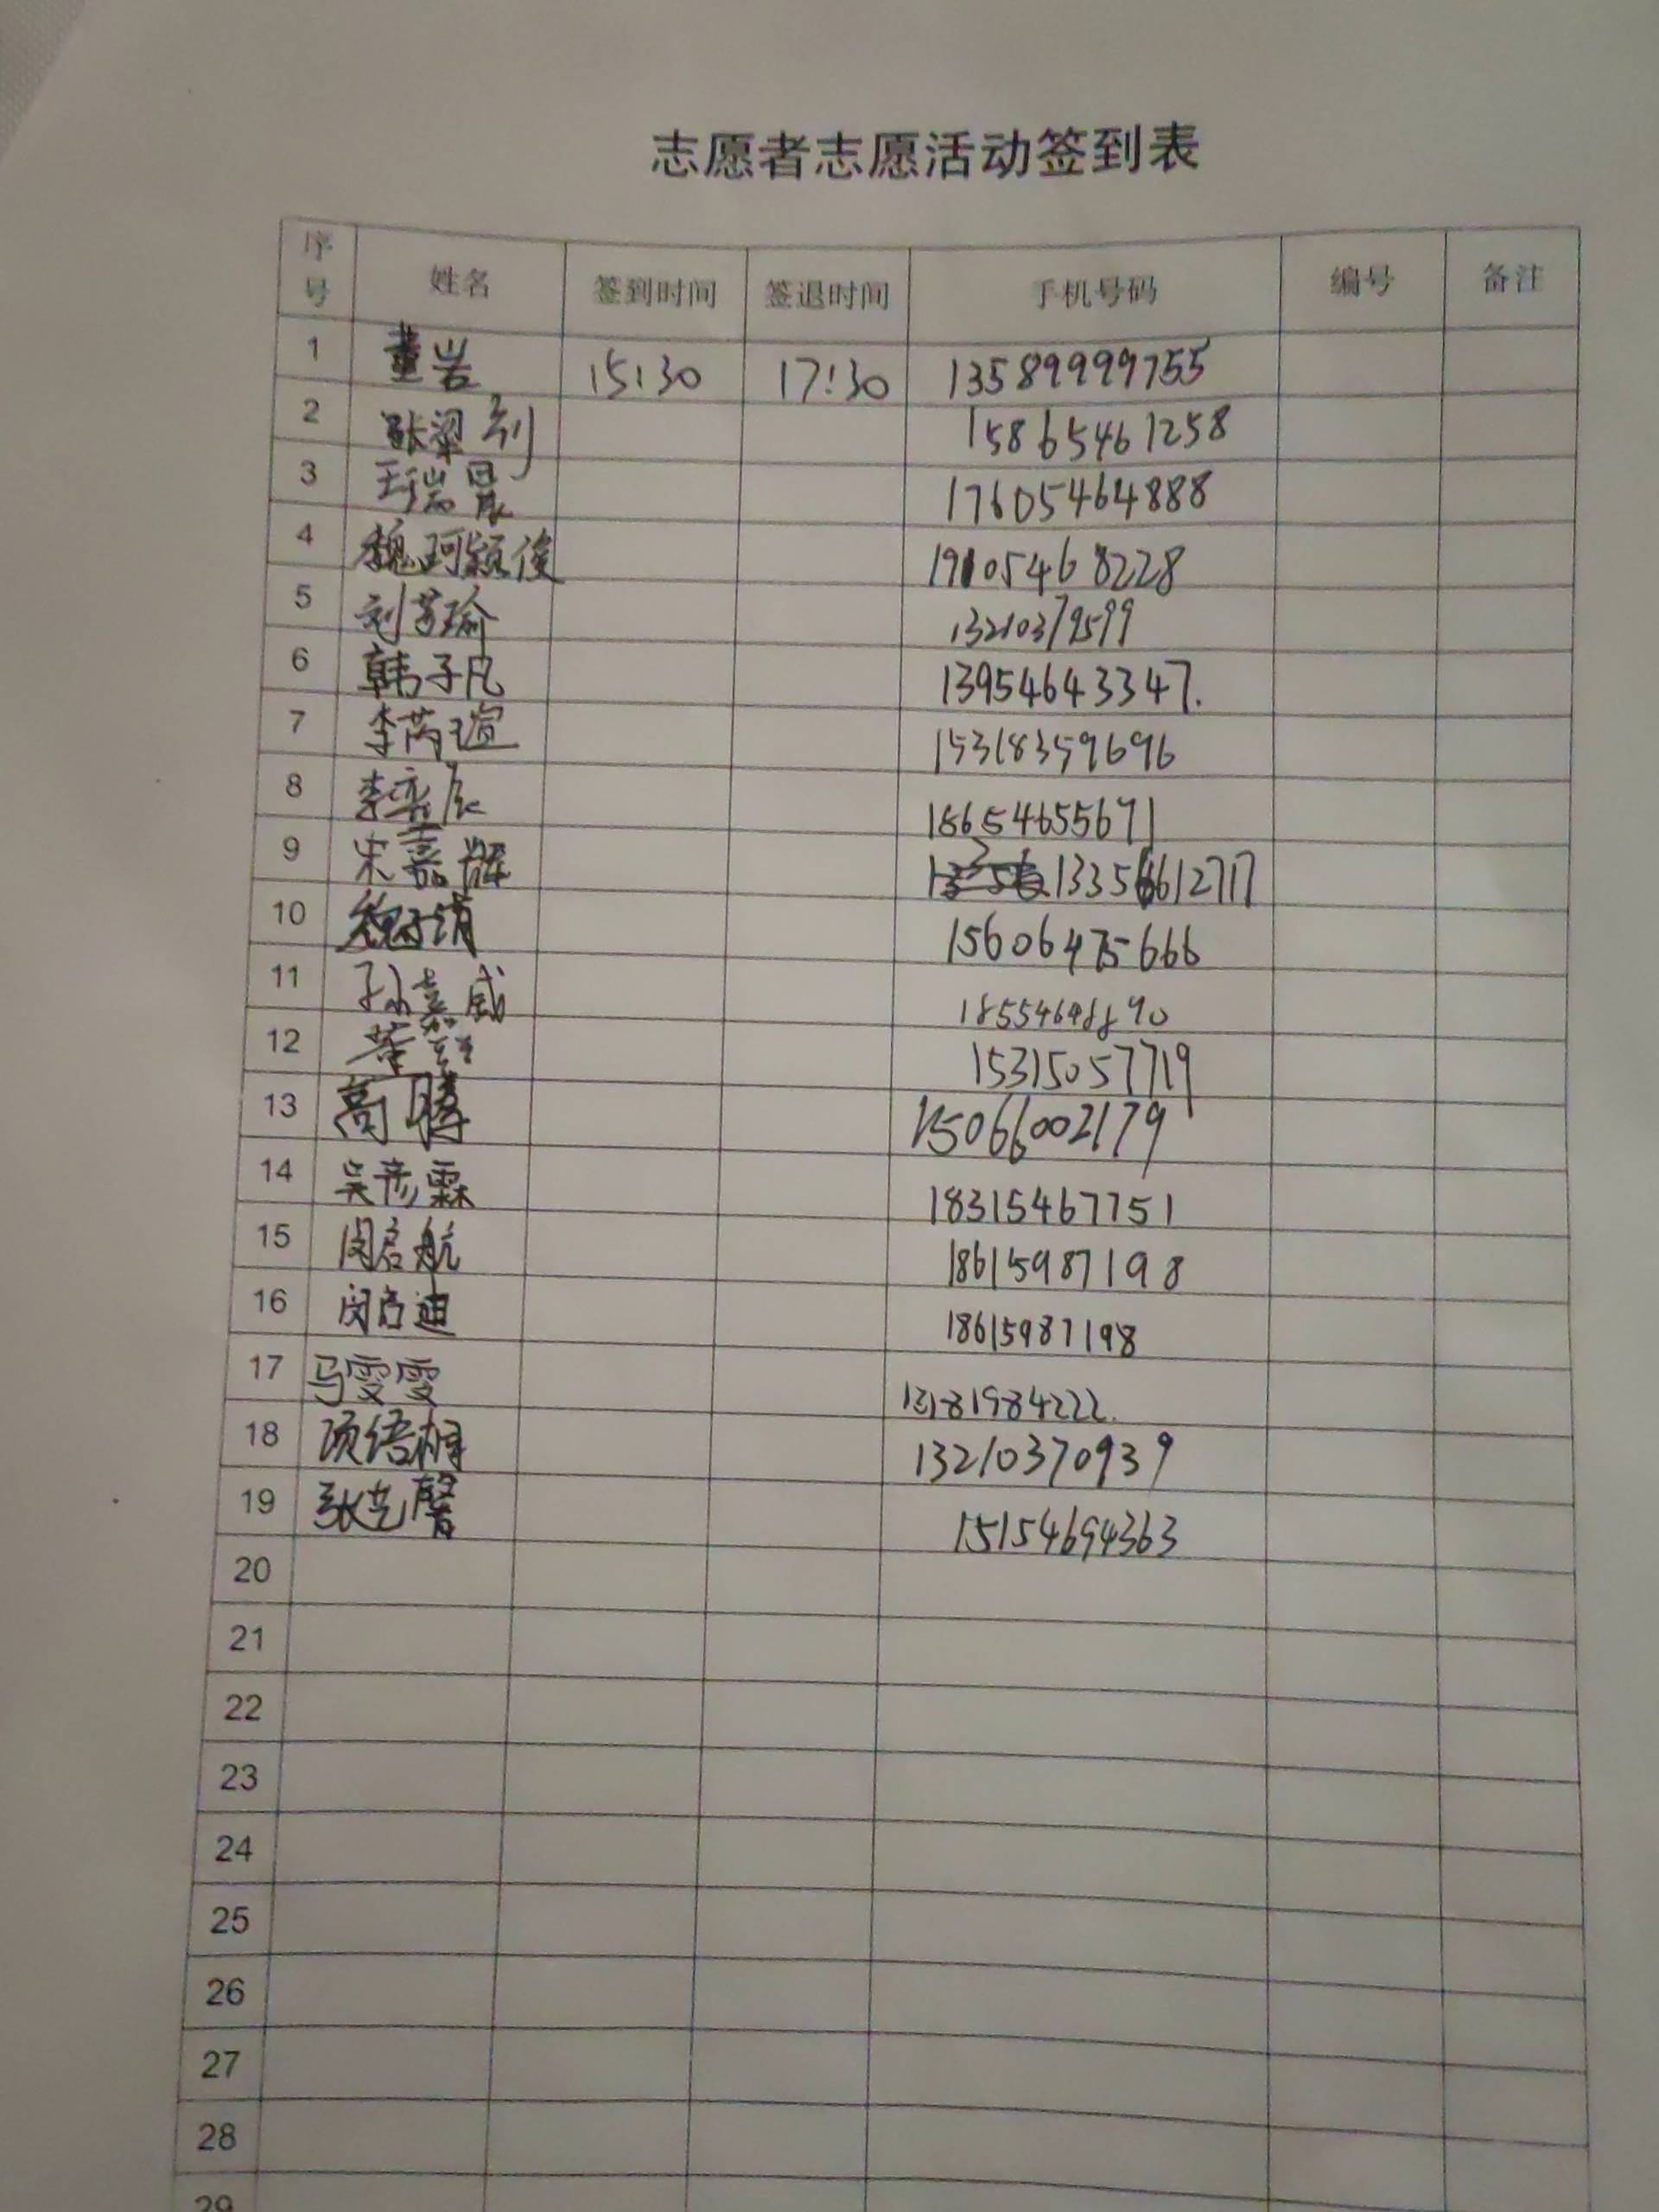 志愿者志愿活动签到表
序号 姓名 签到时间 签退时间 手机号码 编号 备注
1 董岩 15:30 17:30 13589999755
2 张梁 15865461258
3 王瑞晨 17605464888
4 魏珂颖俊 19105468228
5 刘芳瑜 13210379599
6 韩子凡 13954643347.
7 李芮瑄 15318359696
8 李奕辰 18654655671
9 宋嘉辉 13356612717
10 魏子涓 15606475666
11 孙嘉威
12 董 15315057719
13 高腾 15066002179
14 吴彦霖 18315467751
15 闵启航 18615987198
16 闵启迪 18615987198
17 马雯雯
18 项语桐 13210370939
19 张艺馨 15154694363
20
21
22
23
24
25
26
27
28
29